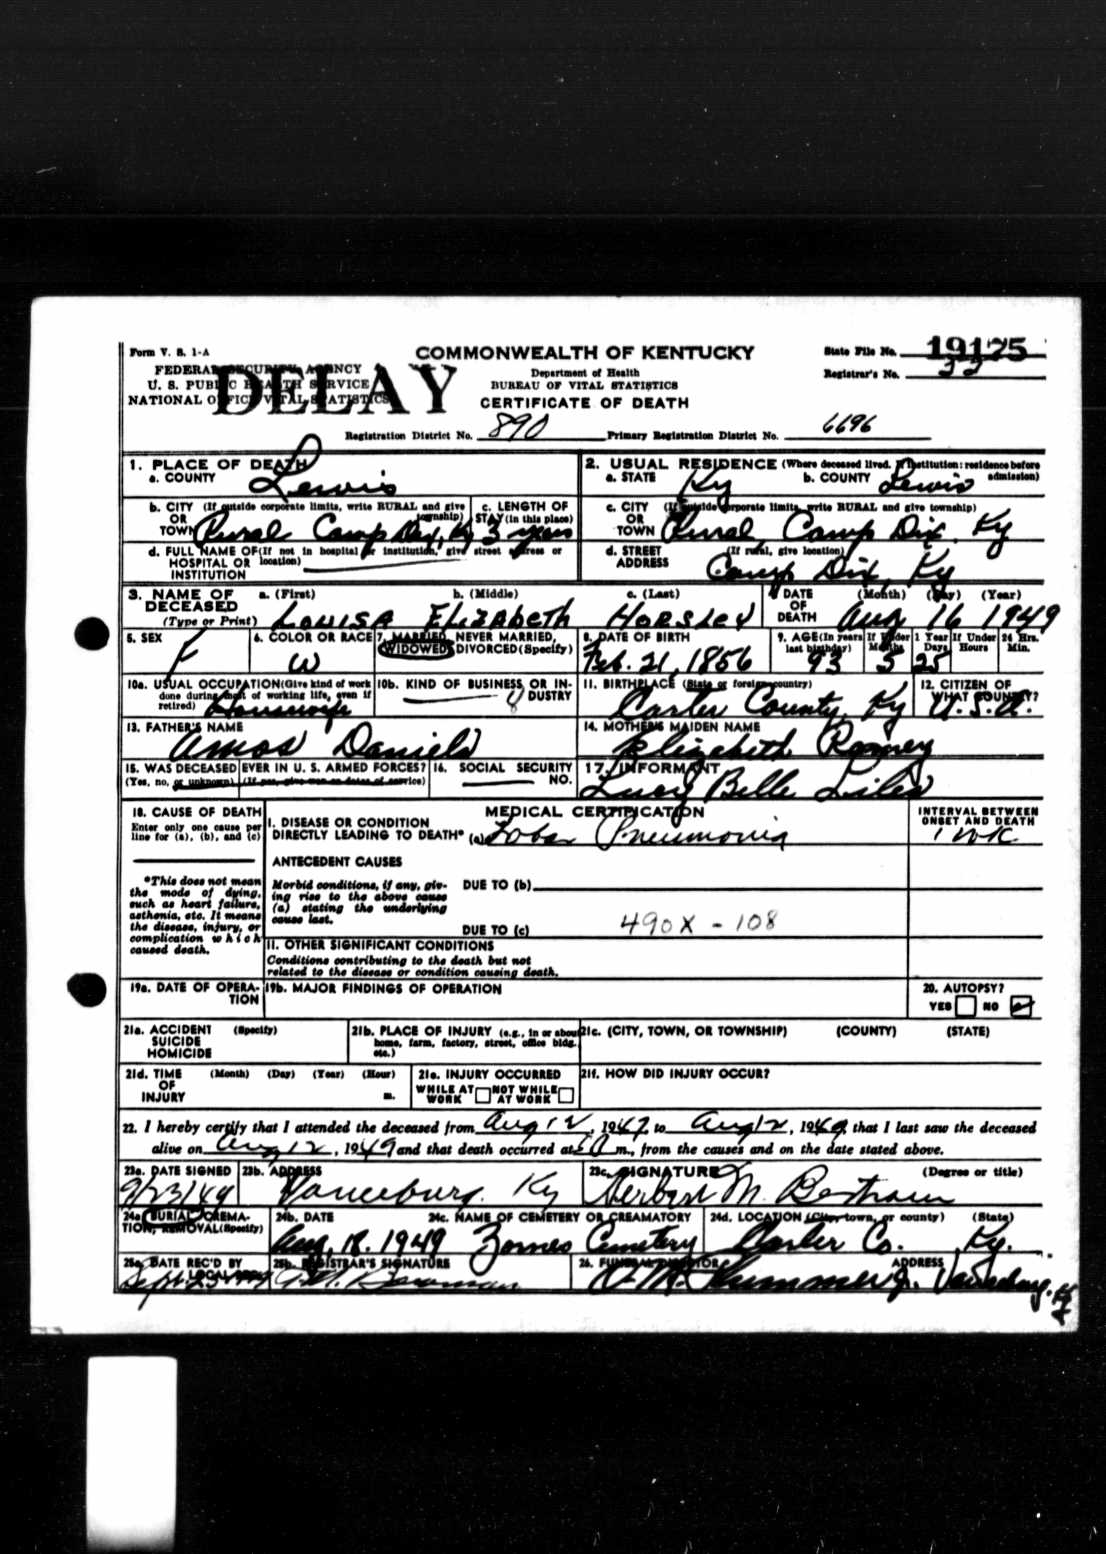 Form V. S. 1-A
COMMONWEALTH OF KENTUCKY
State File No. 19125
FEDERAL SECURITY AGENCY
Department of Health
Registrar's No. 33
U. S. PUBLIC HEALTH SERVICE
BUREAU OF VITAL STATISTICS
NATIONAL OFFICE VITAL STATISTICS
DELAY
CERTIFICATE OF DEATH
Registration District No. 890 Primary Registration District No. 6696
1. PLACE OF DEATH
a. COUNTY Lewis
2. USUAL RESIDENCE (Where deceased lived. If institution: residence before admission)
a. STATE Ky b. COUNTY Lewis
b. CITY (If outside corporate limits, write RURAL and give township)
OR
TOWN Rural Camp Dix, Ky
c. LENGTH OF STAY (in this place) 3 years
c. CITY (If outside corporate limits, write RURAL and give township)
OR
TOWN Rural Camp Dix, Ky
d. FULL NAME OF (If not in hospital or institution, give street address or location)
HOSPITAL OR
INSTITUTION
d. STREET (If rural, give location)
ADDRESS Camp Dix, Ky
3. NAME OF DECEASED a. (First) b. (Middle) c. (Last)
(Type or Print) Louisa Elizabeth Horsley
4. DATE OF DEATH (Month) (Day) (Year)
Aug 16 1949
5. SEX F
6. COLOR OR RACE W
7. MARRIED, NEVER MARRIED, WIDOWED, DIVORCED (Specify)
8. DATE OF BIRTH Feb. 21, 1856
9. AGE (In years last birthday) 93
If Under 1 Year Months 5 Days 25
If Under 24 Hrs. Hours Min.
10a. USUAL OCCUPATION (Give kind of work done during most of working life, even if retired) Housewife
10b. KIND OF BUSINESS OR INDUSTRY
11. BIRTHPLACE (State or foreign country) Carter County, Ky
12. CITIZEN OF WHAT COUNTRY? U.S.A.
13. FATHER'S NAME Amos Daniels
14. MOTHER'S MAIDEN NAME Elizabeth Ramey
15. WAS DECEASED EVER IN U. S. ARMED FORCES?
(Yes, no, or unknown) (If yes, give war or dates of service)
16. SOCIAL SECURITY NO.
17. INFORMANT Lucy Belle Liles
18. CAUSE OF DEATH
Enter only one cause per line for (a), (b), and (c)
MEDICAL CERTIFICATION
INTERVAL BETWEEN ONSET AND DEATH
I. DISEASE OR CONDITION
DIRECTLY LEADING TO DEATH* (a) Lobar Pneumonia 1 WK
ANTECEDENT CAUSES
*This does not mean the mode of dying, such as heart failure, asthenia, etc. It means the disease, injury, or complication which caused death.
Morbid conditions, if any, giving rise to the above cause (a) stating the underlying cause last.
DUE TO (b)
DUE TO (c)
490X - 108
II. OTHER SIGNIFICANT CONDITIONS
Conditions contributing to the death but not related to the disease or condition causing death.
19a. DATE OF OPERATION
19b. MAJOR FINDINGS OF OPERATION
20. AUTOPSY?
YES NO
21a. ACCIDENT (Specify)
SUICIDE
HOMICIDE
21b. PLACE OF INJURY (e.g., in or about home, farm, factory, street, office bldg. etc.)
21c. (CITY, TOWN, OR TOWNSHIP) (COUNTY) (STATE)
21d. TIME OF INJURY (Month) (Day) (Year) (Hour) m.
21e. INJURY OCCURRED
WHILE AT WORK NOT WHILE AT WORK
21f. HOW DID INJURY OCCUR?
22. I hereby certify that I attended the deceased from Aug 12, 1947, to Aug 12, 1949, that I last saw the deceased
alive on Aug 12, 1949 and that death occurred at m., from the causes and on the date stated above.
23a. DATE SIGNED 9/23/49
23b. ADDRESS Vanceburg, Ky
23c. SIGNATURE (Degree or title)
Herbert M. Bertram
24a. BURIAL, CREMATION, REMOVAL (Specify)
24b. DATE Aug. 18. 1949
24c. NAME OF CEMETERY OR CREAMATORY Zornes Cemetery
24d. LOCATION (City, town, or county) (State)
Carter Co. Ky.
25a. DATE REC'D BY LOCAL Sept 23
25b. REGISTRAR'S SIGNATURE
26. FUNERAL DIRECTOR ADDRESS
Plummer Vanceburg, Ky